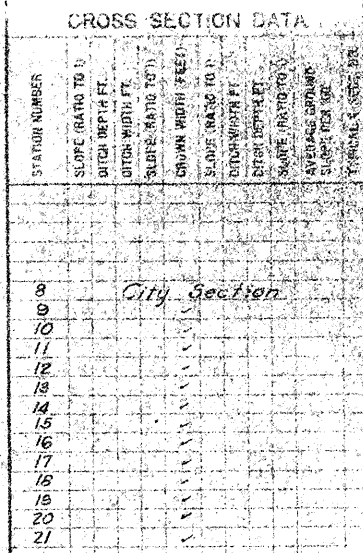 CROSS SECTION DATA
STATION NUMBER
SLOPE (RATIO TO 1)
DITCH DEPTH FT.
DITCH WIDTH FT.
SLOPE (RATIO TO 1)
CROWN WIDTH (FEET)
SLOPE (RATIO TO 1)
DITCH WIDTH FT.
DITCH DEPTH FT.
SLOPE (RATIO TO 1)
AVERAGE GROUND
8 City Section
9 "
10 "
11 "
12 "
13 "
14 "
15 "
16 "
17 "
18 "
19 "
20 "
21 "